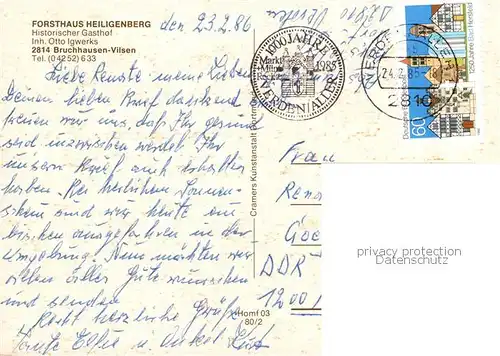 FORSTHAUS HEILIGENBERG
Historischer Gasthof
Inh. Otto Igwerks
2814 Bruchhausen-Vilsen
Tel. (0 42 52) 633
den 23.2.86
Liebe Renate meine Lieben
Deinen lieben Brief dankend
freuen wir uns das Ihr gesund
und inzwischen werdet Ihr
unseren Brief auch erhalten
haben. Bei herlichem Sonnen-
schein sind wir heute ein
bischen ausgefahren in der
Umgebung. Nun möchten wir
vielen alles Gute wünschen
und senden
Recht herzliche Grüße
Tante Elfie u. Onkel
1000 JAHRE
Markt
1985
VERDEN/ALLER
VERDEN
24.2.86
2810
Deutsche Bundespost
60
1250 Jahre Bad Hersfeld
Cramers Kunstanstalt Dortmund
Homf 03
80/2
Frau
DDR
1200
privacy protection
Datenschutz